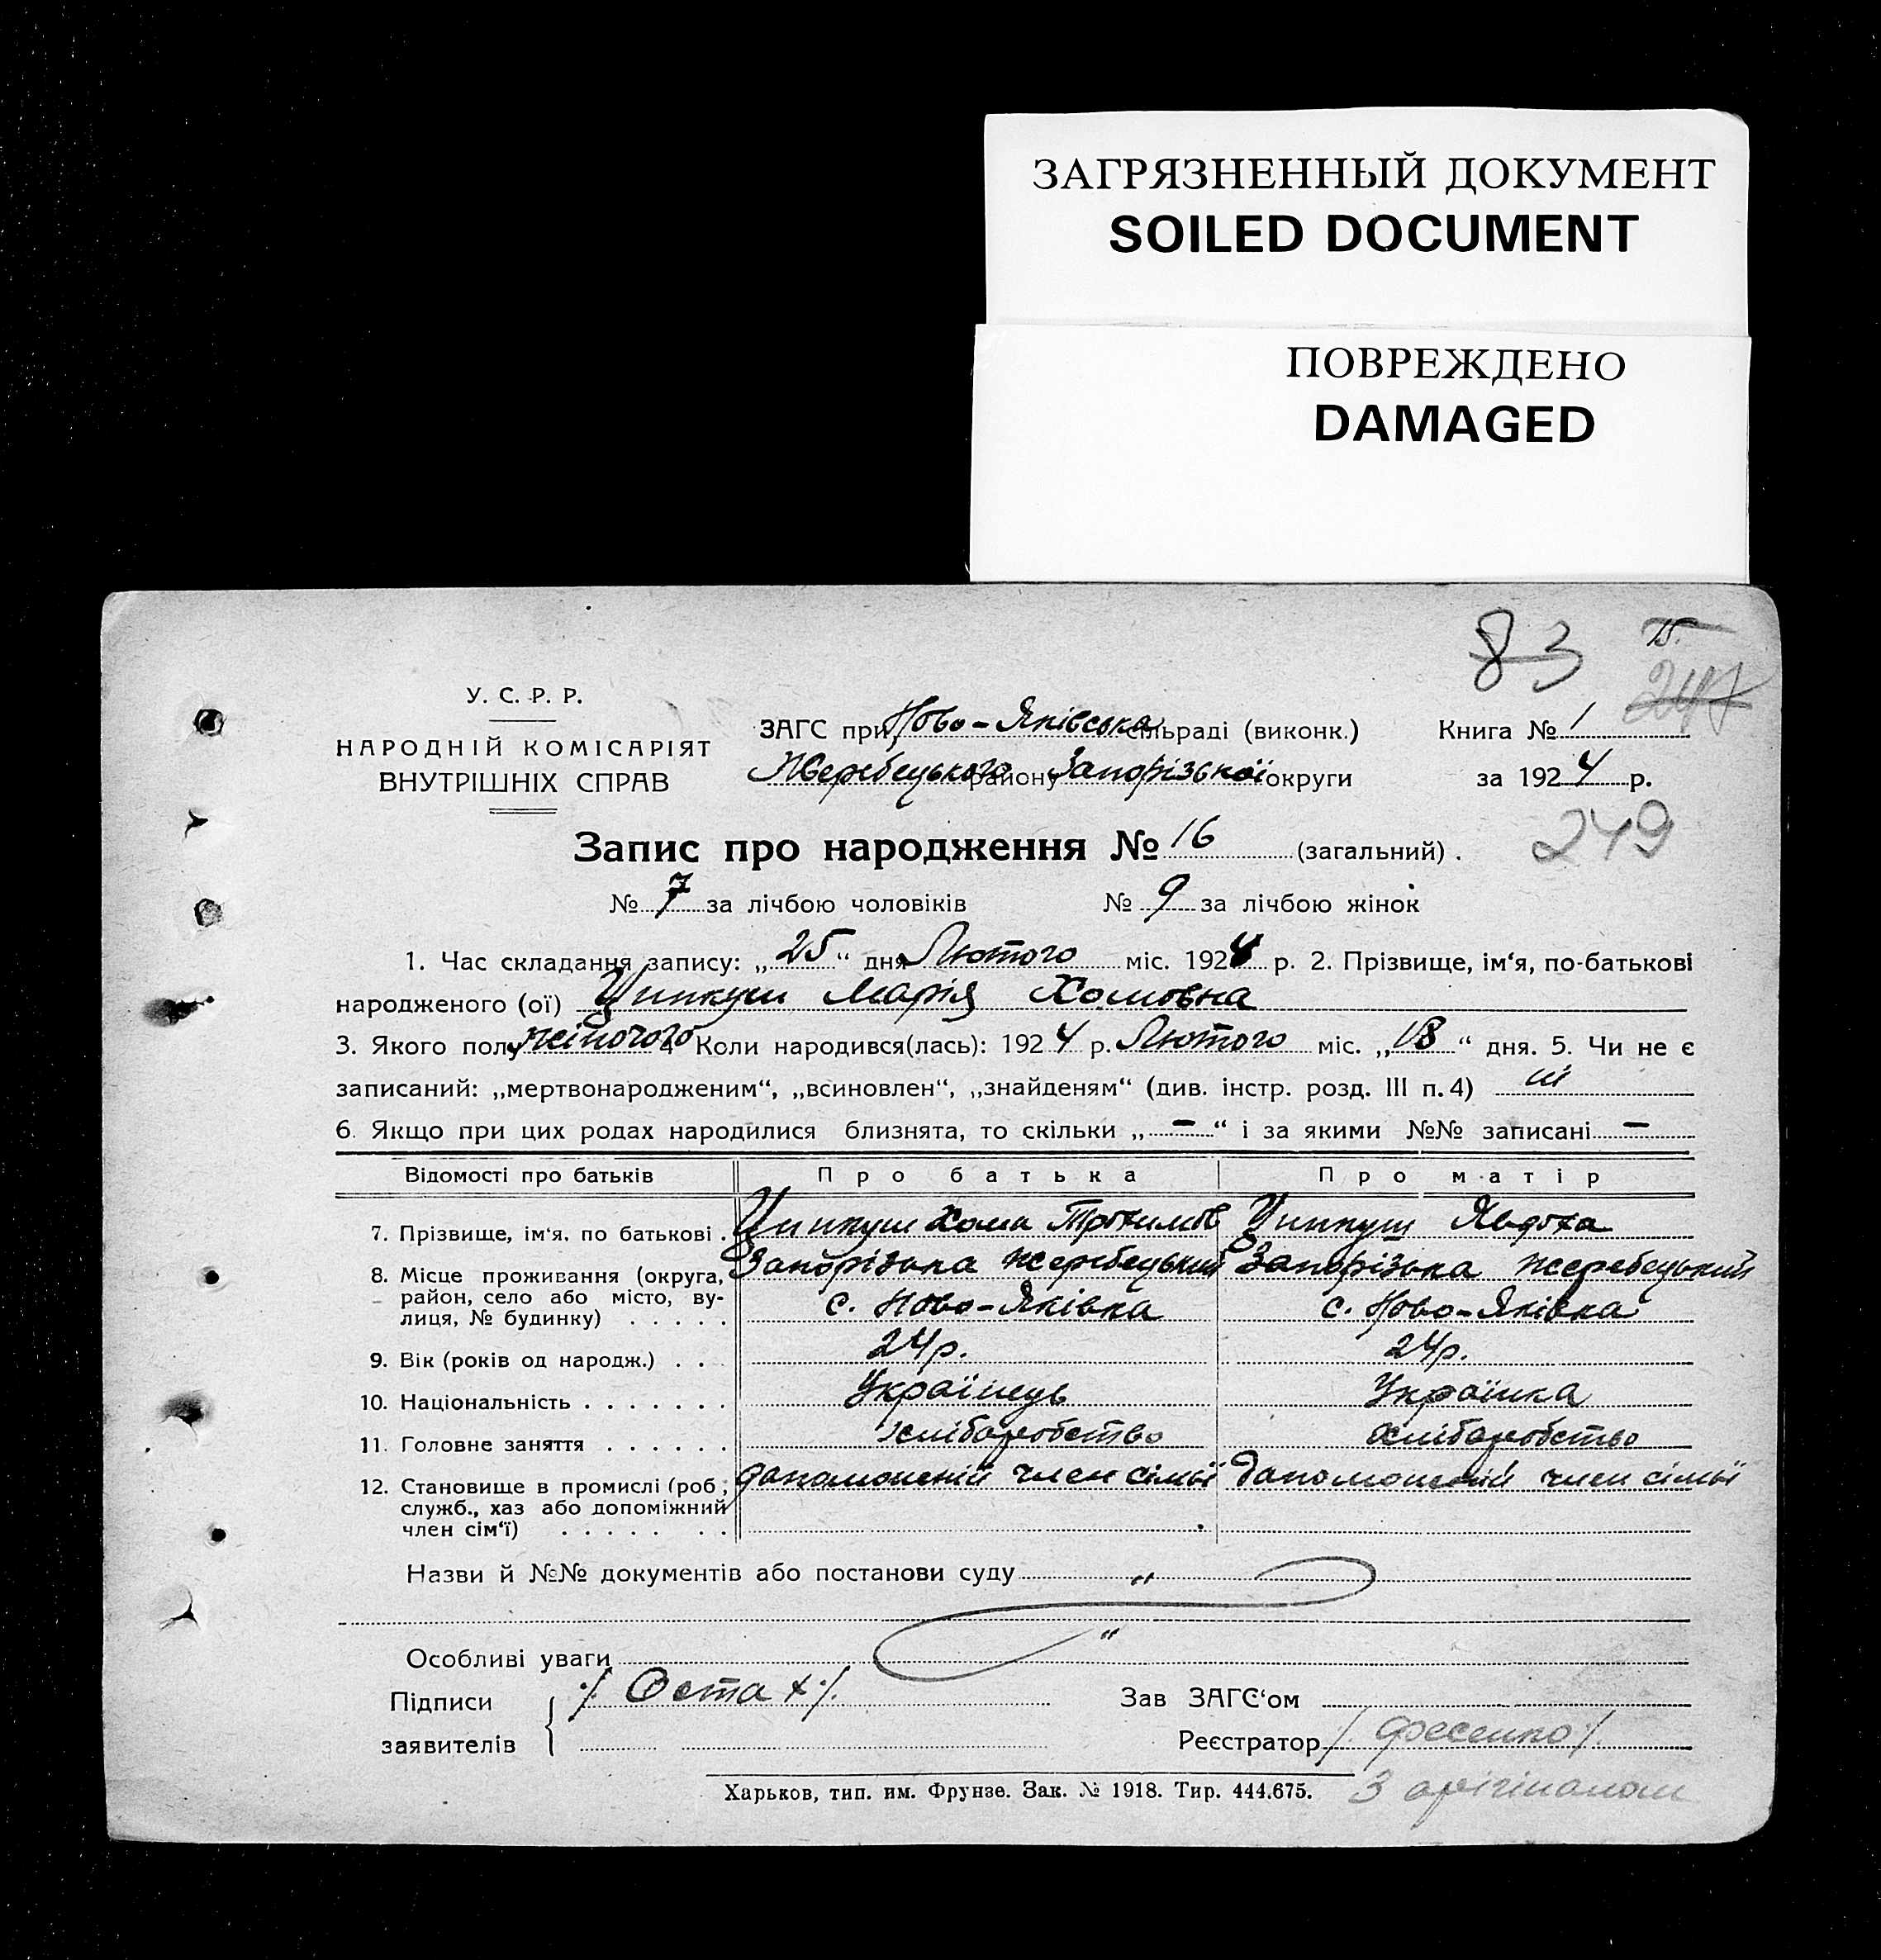 ЗАГРЯЗНЕННЫЙ ДОКУМЕНТ
SOILED DOCUMENT
ПОВРЕЖДЕНО
DAMAGED
83
15.
247
У. С. Р. Р.
НАРОДНІЙ КОМІСАРІЯТ
ВНУТРІШНІХ СПРАВ
ЗАГС при Ново-Яківська сільраді (виконк.) Книга № 1
Жеребецького району Запорізької округи за 1924 р.
249
Запис про народження № 16 (загальний).
№ 7 за лічбою чоловіків № 9 за лічбою жінок
1. Час складання запису: „25“ дня Лютого міс. 1924 р. 2. Прізвище, ім‘я, по-батькові
народженого (ої) Ципкуш Марія Хомовна
3. Якого полу жіночого 4 Коли народився(лась): 1924 р. Лютого міс. „18“ дня. 5. Чи не є
записаний: „мертвонародженим“, „всиновлен“, „знайденям“ (див. інстр. розд. III п. 4)
6. Якщо при цих родах народилися близнята, то скільки „ — “ і за якими №№ записані —
Відомості про батьків Про батька Про матір
7. Прізвище, ім‘я. по батькові . Ципкуш Хома Трохимов Ципкуш Явдоха
8. Місце проживання (округа, район, село або місто, ву-
лиця, № будинку) . . . . . Запорізька Жеребецький Запорізька Жеребецький
с. Ново-Яківка с. Ново-Яківка
9. Вік (років од народж.) . . 24р. 24р.
10. Національність . . . . . . . Українець Українка
11. Головне заняття . . . . . . хліборобство хліборобство
12. Становище в промислі (роб.; служб., хаз або допоміжний
член сім‘ї) . . . . . . . член сімьї член сімьї
Назви й №№ документів або постанови суду "
Особливі уваги "
Підписи
заявителів
Зав ЗАГС‘ом
Реєстратор /Фесенко/
Харьков, тип. им. Фрунзе. Зак. № 1918. Тир. 444.675.
З оригіналом